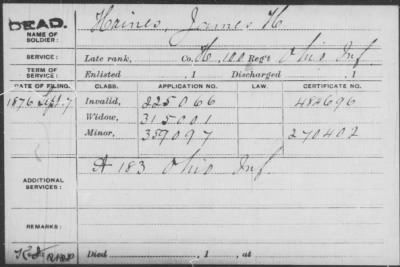 DEAD. Haines, James H
NAME OF SOLDIER:
SERVICE: Late rank, Co. H, 100 Reg't Ohio Inf
TERM OF SERVICE: Enlisted , 1 Discharged , 1
DATE OF FILING. CLASS. APPLICATION NO. LAW. CERTIFICATE NO.
1876 Sept. 7 Invalid, 225066 484696
Widow, 315001
Minor, 359097 270402
A 183 Ohio Inf
ADDITIONAL SERVICES:
REMARKS:
Died , 1 , at